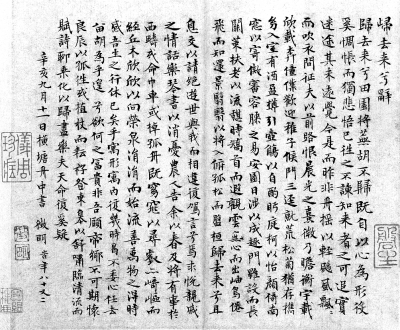 歸去來兮辭
歸去來兮田園將蕪胡不歸既自以心為形役
奚惆悵而獨悲悟已往之不諫知來者之可追實
迷途其未遠覺今是而昨非舟搖搖以輕颺風飄飄
而吹衣問征夫以前路恨晨光之熹微乃瞻衡宇載
欣載奔僮僕歡迎稚子候門三逕就荒松菊猶存攜
幼入室有酒盈樽引壺觴以自酌眄庭柯以怡顏倚南
窗以寄傲審容膝之易安園日涉以成趣門雖設而長
關策扶老以流憩時矯首而遐觀雲無心而出岫鳥倦
飛而知還景翳翳以將入撫孤松而盤桓歸去來兮且
息交以請絕遊世與我而相違復駕言兮焉求悅親戚
之情話樂琴書以消憂農人告余以春及將有事於
西疇或命巾車或棹孤舟既窈窕以尋壑亦崎嶇而
經丘木欣欣以向榮泉涓涓而始流善萬物之得時
感吾生之行休已矣乎寓形宇內復幾時曷不委心任去
留胡為乎遑遑兮欲何之富貴非吾願帝鄉不可期懷
良辰以孤往或植杖而耘耔登東皋以舒嘯臨清流而
賦詩聊乘化以歸盡樂夫天命復奚疑
辛亥九月十一日橫塘舟中書 徵明 時年八十又二